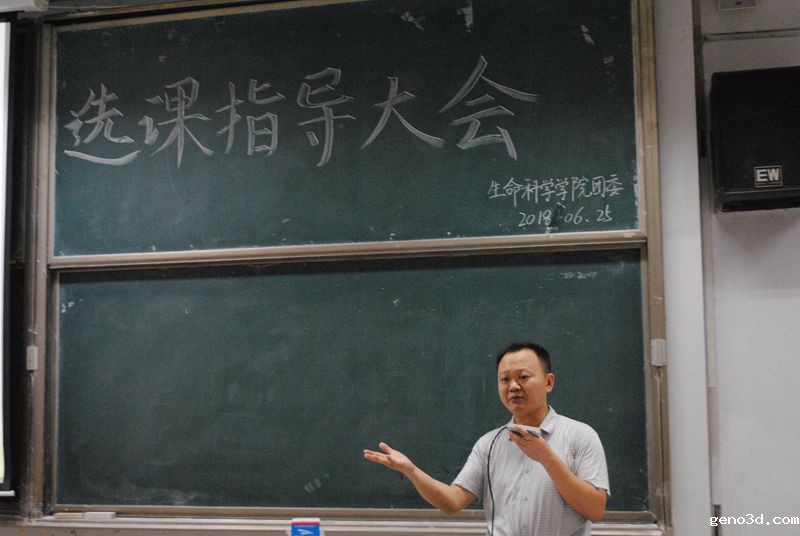 选课指导大会
生命科学学院团委
2018.06.25
EW
geno3d.com